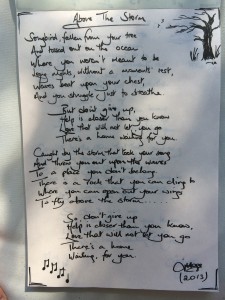 Above The Storm
Songbird, fallen from your tree
And tossed out on the ocean
Where you weren't meant to be
Long nights, without a moments' rest,
Waves beat upon your chest,
And you struggle just to breathe
But don't give up,
Help is closer than you know
Love that will not let you go
There's a home waiting for you
Caught by the storm that took your song
And threw you out upon the waves
To a place you don't belong
There is a rock that you can cling to
Where you can open out your wings
To fly above the storm.......
So, don't give up
Help is closer than you know,
Love that will not let you go
There's a home
Waiting, for you
(2013)